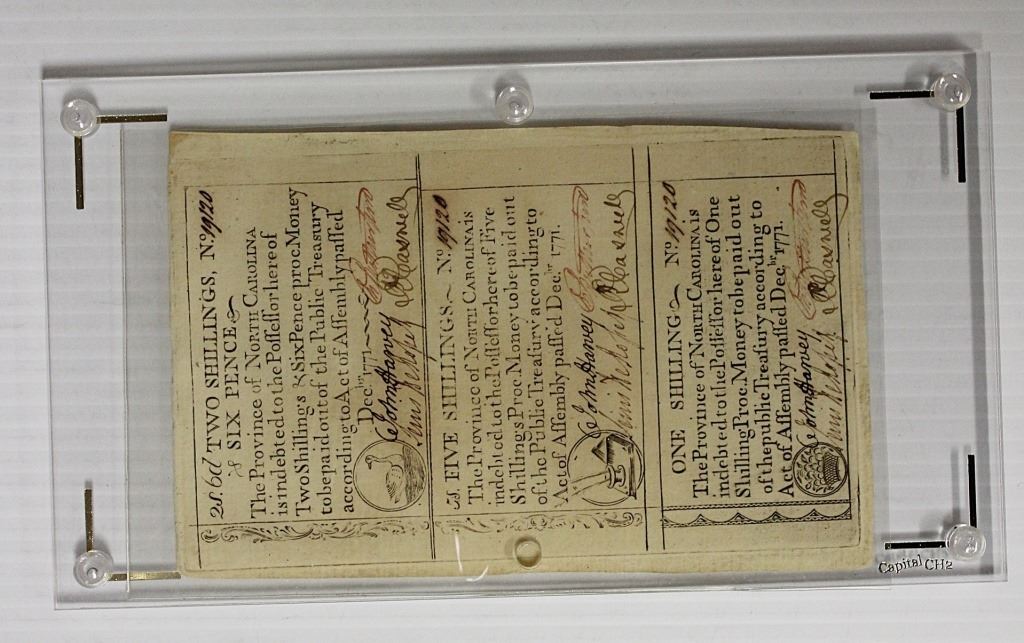 2s. 6d TWO SHILLINGS, No. 19120
& SIX PENCE.
The Province of NORTH CAROLINA
is indebted to the Poſſeſſor hereof
Two Shillings & Six Pence proc. Money
to be paid out of the Public Treasury
according to Act of Aſſembly paſſed
Decbr. 1771.
John Harvey
R Caswell
5s. FIVE SHILLINGS No. 19120
The Province of NORTH CAROLINA is
indebted to the Poſſeſſor hereof Five
Shillings Proc. Money to be paid out
of the Public Treaſury according to
Act of Aſſembly paſſed Decbr. 1771.
John Harvey
R Caswell
ONE SHILLING No. 19120
The Province of NORTH CAROLINA is
indebted to the Poſſeſſor hereof One
Shilling Proc. Money to be paid out
of the public Treaſury according to
Act of Aſſembly paſſed Decbr. 1771.
John Harvey
R Caswell
Capital CH2